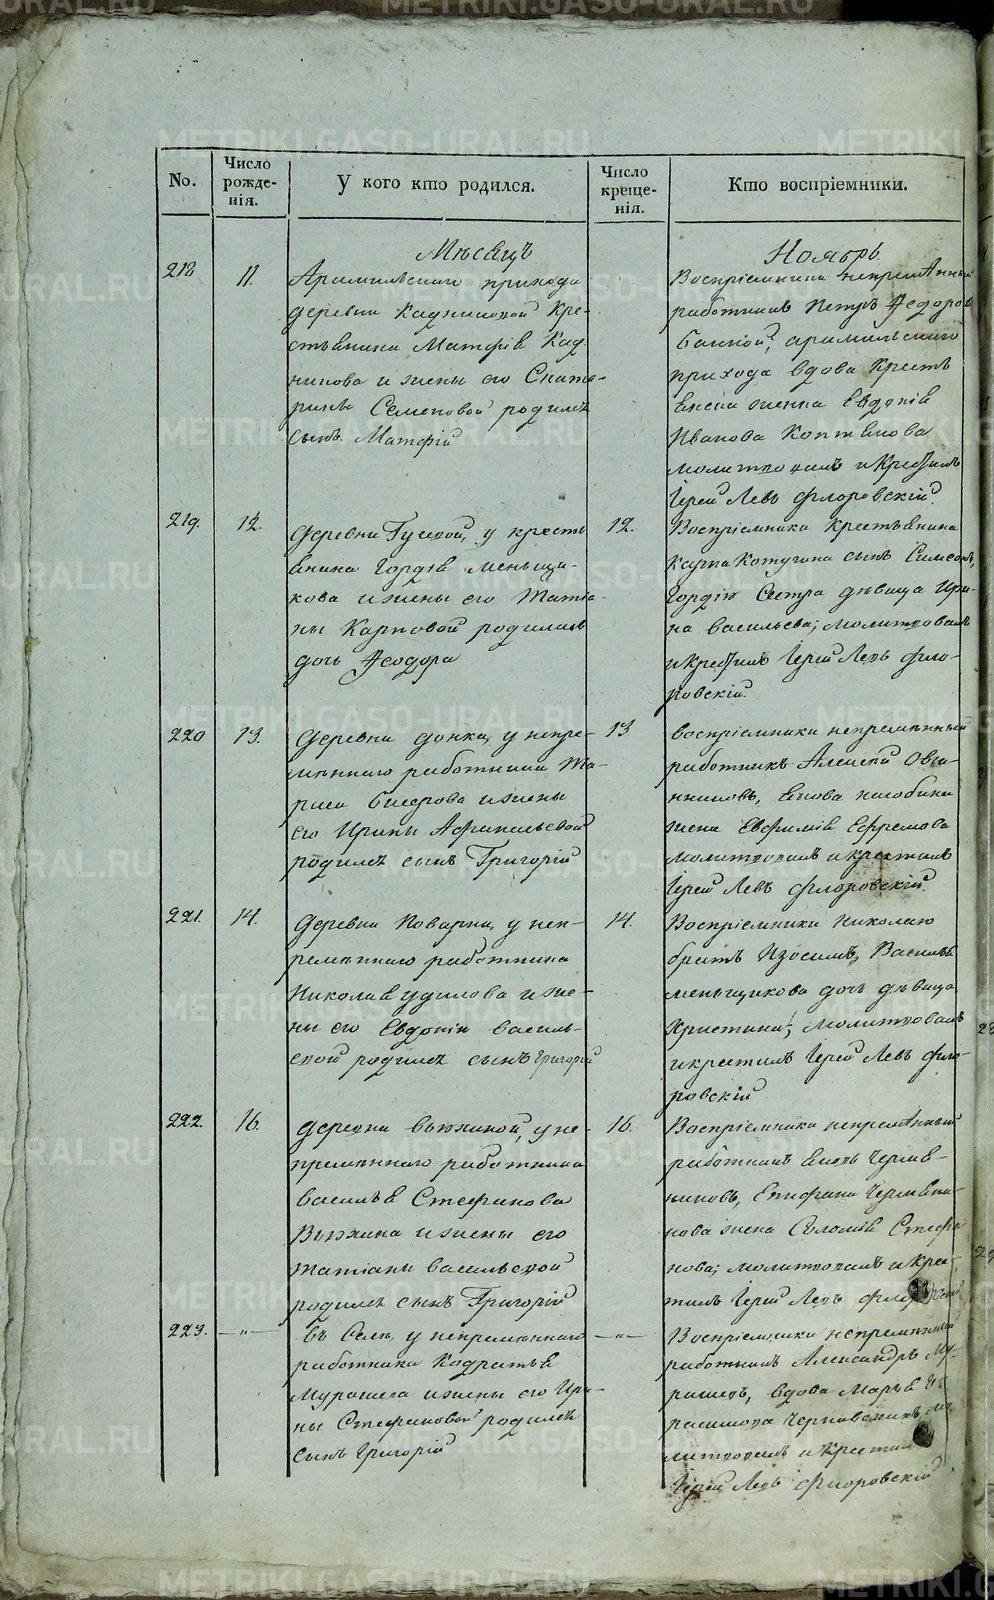 No.
Число рожде-нія.
У кого кто родился.
Число креще-нія.
Кто воспріемники.
Мѣсяцъ
Ноябрь
218
11.
Арамильскаго прихода
деревни Кадниковой кре-
стьянина Матфія Кад
никова и жены его Екате-
рины Семеновой родился
сынъ Матфій
Воспріемники непремѣнный
работникъ Петръ Ѳедоров
арамильскаго
прихода вдова Кресть
янская женка Евдокія
Иванова Коптякова
молитвовалъ и крестилъ
Іерей Левъ Флоровскій.
219.
12.
деревни Гусевой, у кресть
янина Гордѣя Меньщи-
кова и жены его Татья-
ны Карповой родилась
дочь Ѳеодора
12.
Воспріемники крестьянина
Карпа Котугина сынъ Симеонъ,
Гордія сестра дѣвица Ири-
на Васильева; молитвовалъ
и крестилъ Іерей Левъ Фло-
ровскій.
220
13.
деревни у непре-
мѣннаго работника
и жены
его Ирины
родился сынъ Григорій
13
воспріемники непремѣнный
работникъ Алексей Овчи-
нниковъ,
жена Евфимія Ефремова
молитвовалъ и крестилъ
Іерей Левъ Флоровскій.
221.
14.
деревни Поварни, у неп-
ремѣннаго работника
Николая Удилова и же-
ны его Евдокіи Василь-
евой родился сынъ Григорій
14.
Воспріемники Николаю
братъ Изосимъ, Василья
меньщикова дочь дѣвица
Христина; молитвовалъ
и крестилъ Іерей Левъ Фло-
ровскій
222.
16.
деревни Вьюхиной, у не-
премѣннаго работника
Василья Стефанова
Вьюхина и жены его
Татіаны Васильевой
родился сынъ Григорій
16.
Воспріемники непремѣнный
работникъ Яковъ Чермя-
ниновъ, Епифана Чермяни-
нова жена Соломія Стефа
нова; молитвовалъ и крес-
тилъ Іерей Левъ Флоровскій
223.
—„—
въ Селѣ, у непремѣннаго
работника Кодратья
Мурашева и жены его Ири-
ны Стефановой родился
сынъ Григорій
—„—
Воспріемники непремѣнный
работникъ Александръ Му-
рашевъ, вдова Марья
мо
литвовалъ и крестилъ
Іерей Левъ Флоровскій
METRIKI.GASO-URAL.RU